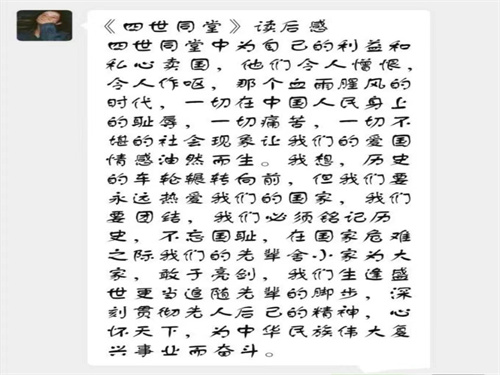 《四世同堂》读后感
四世同堂中为自己的利益和
私心卖国，他们令人憎恨，
令人作呕，那个血雨腥风的
时代，一切在中国人民身上
的耻辱，一切痛苦，一切不
堪的社会现象让我们的爱国
情感油然而生。我想，历史
的车轮辗转向前，但我们要
永远热爱我们的国家，我们
要团结，我们必须铭记历
史，不忘国耻，在国家危难
之际我们的先辈舍小家为大
家，敢于亮剑，我们生逢盛
世更当追随先辈的脚步，深
刻贯彻先人后己的精神，心
怀天下，为中华民族伟大复
兴事业而奋斗。